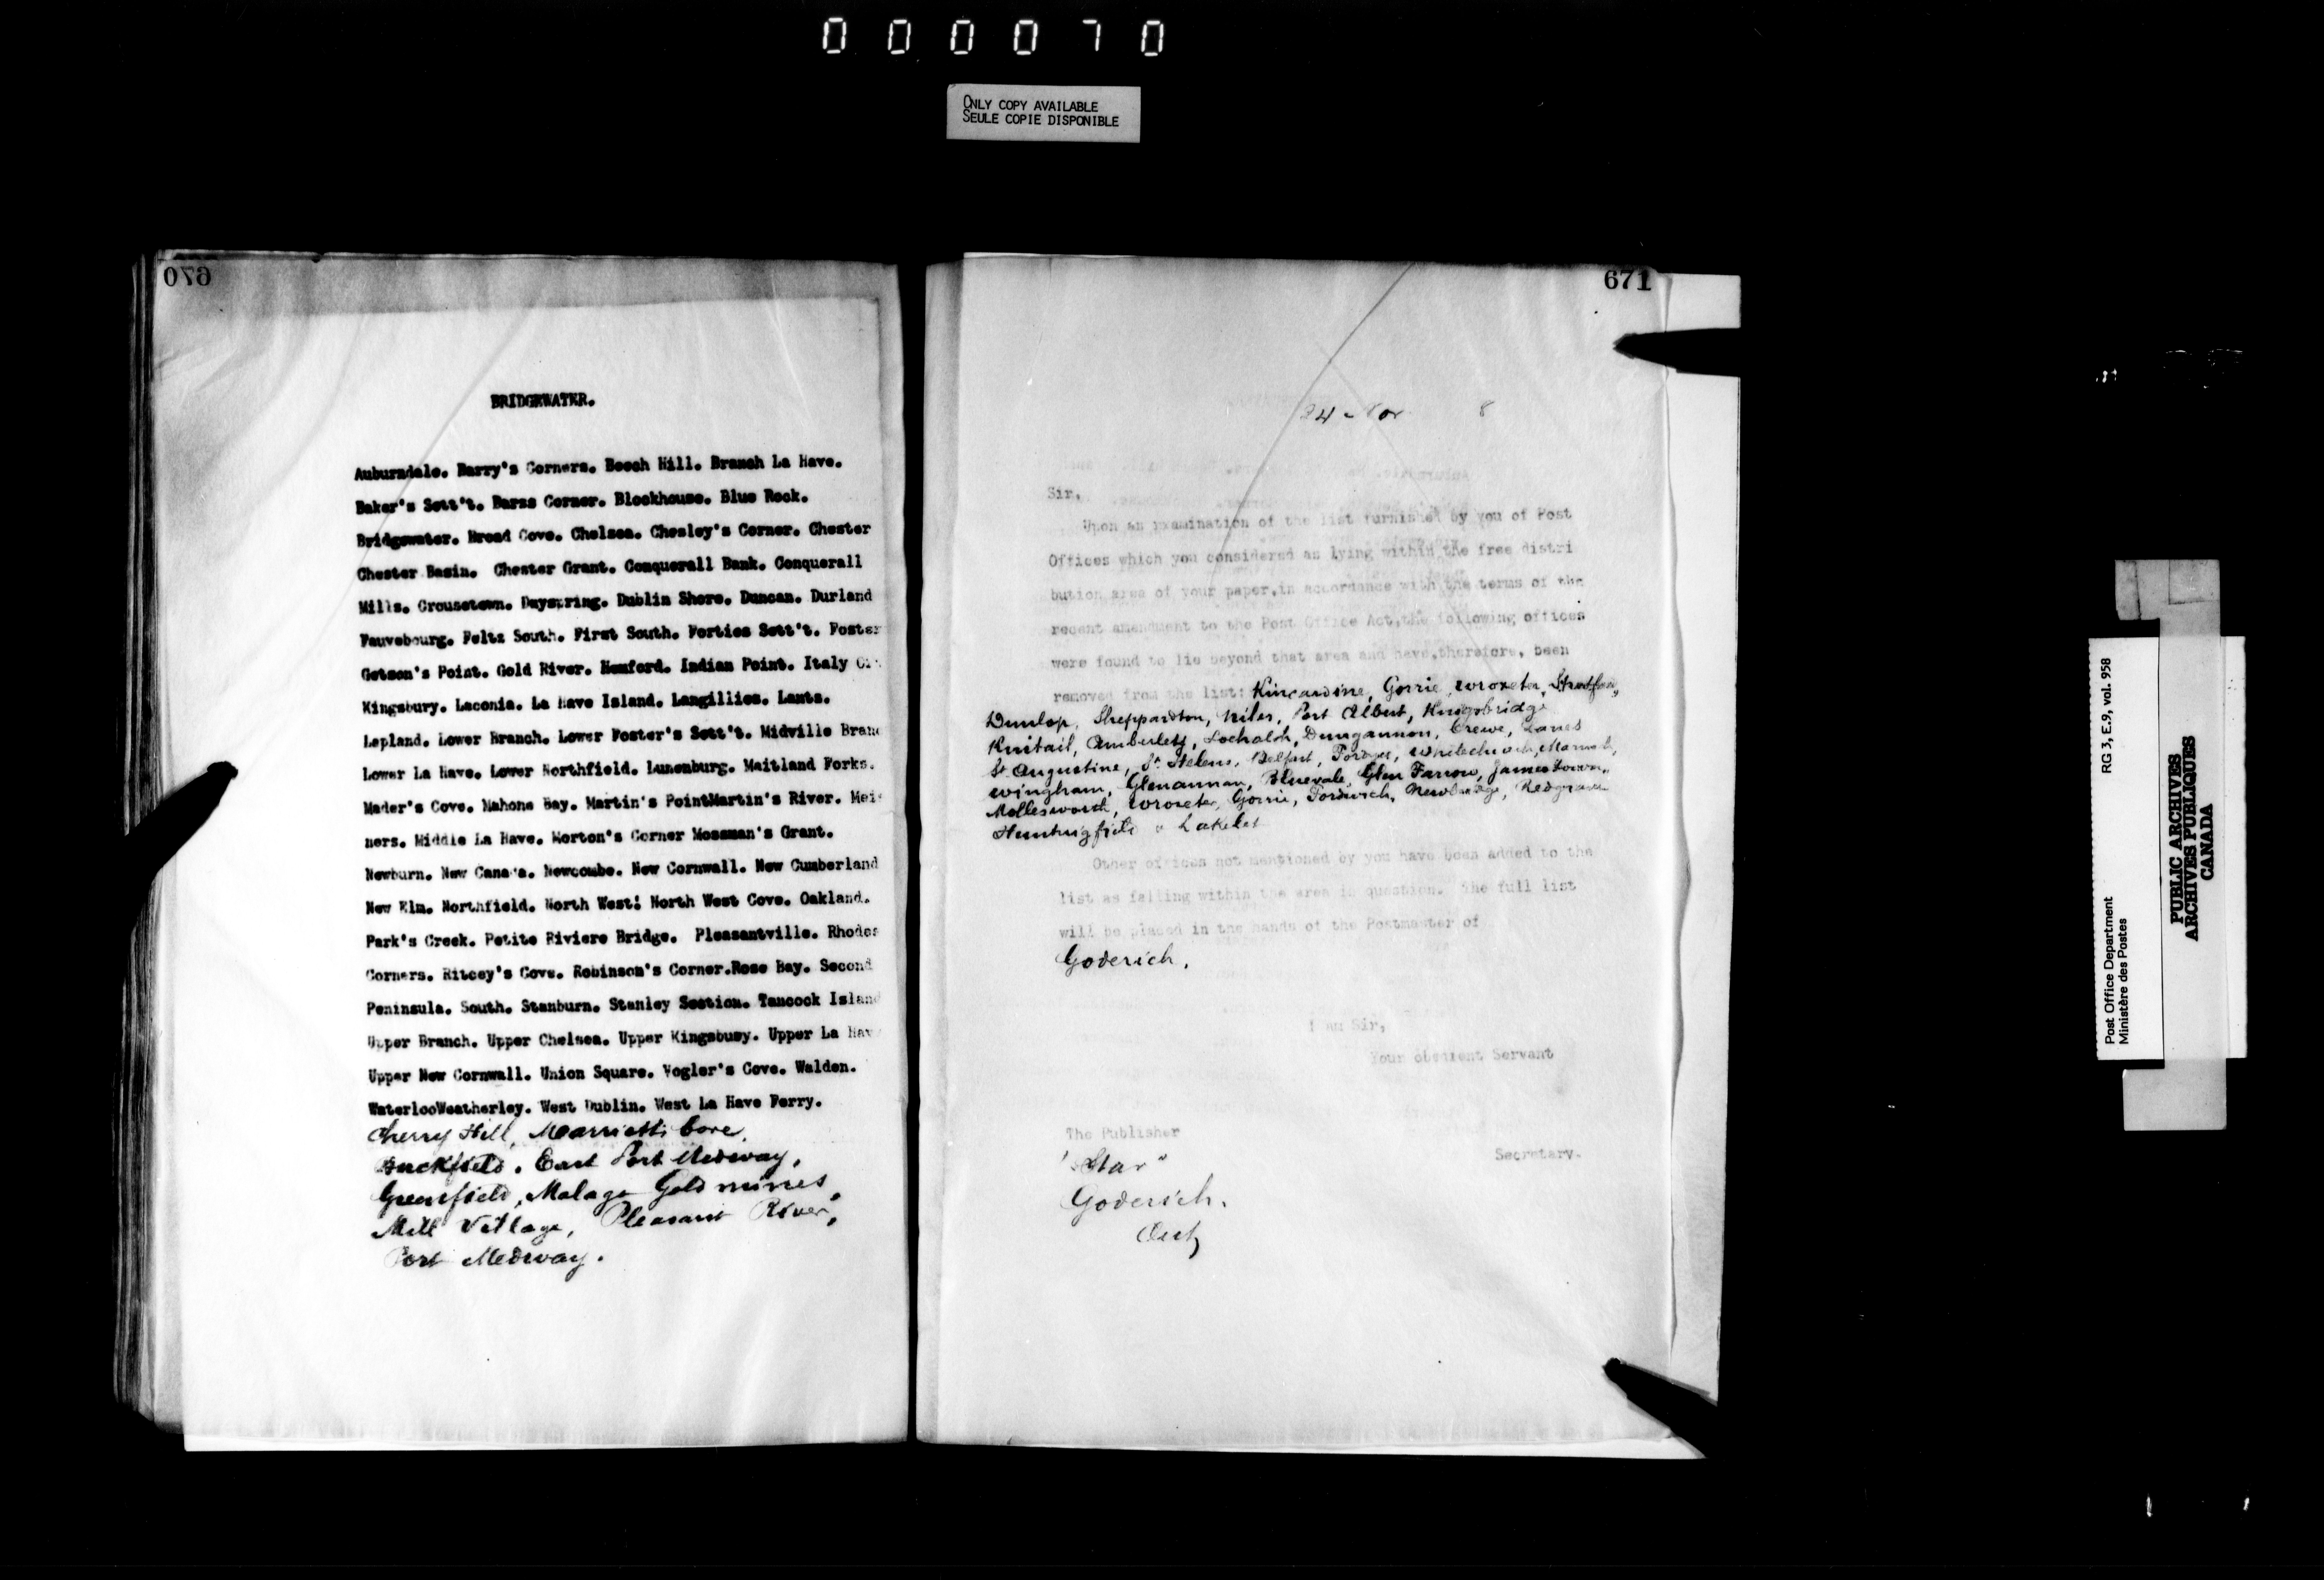 000070
ONLY COPY AVAILABLE
SEULE COPIE DISPONIBLE
670
BRIDGEWATER.
Auburndale. Barry's Corners. Beech Hill. Branch La Have.
Baker's Sett't. Barss Corner. Blockhouse. Blue Rock.
Bridgewater. Broad Cove. Chelsea. Chesley's Corner. Chester
Chester Basin. Chester Grant. Conquerall Bank. Conquerall
Mills. Crousetown. Dayspring. Dublin Shore. Duncan. Durland
Fauvebourg. Feltz South. First South. Forties Sett't. Foster
Getson's Point. Gold River. Hemford. Indian Point. Italy Cr
Kingsbury. Laconia. La Have Island. Langillies. Lantz.
Lapland. Lower Branch. Lower Foster's Sett't. Midville Branc
Lower La Have. Lower Northfield. Lunenburg. Maitland Forks.
Mader's Cove. Mahone Bay. Martin's PointMartin's River. Mei
ners. Middle La Have. Morton's Corner Mossman's Grant.
Newburn. New Canada. Newcombe. New Cornwall. New Cumberland
New Elm. Northfield. North West! North West Cove. Oakland.
Park's Creek. Petite Riviere Bridge. Pleasantville. Rhodes
Corners. Ritcey's Cove. Robinson's Corner.Rose Bay. Second
Peninsula. South. Stanburn. Stanley Section. Tancock Island
Upper Branch. Upper Chelsea. Upper Kingsbusy. Upper La Hav
Upper New Cornwall. Union Square. Vogler's Cove. Walden.
WaterlooWeatherley. West Dublin. West La Have Ferry.
Cherry Hill, Marriotts Cove,
Buckfield, East Port Medway,
Greenfield, Malaga Gold mines,
Mill Village, Pleasant River,
Port Medway.
671
24 - Nov 8
Sir,
Upon an examination of the list furnished by you of Post
Offices which you considered as lying within the free distri
bution area of your paper,in accordance with the terms of the
recent amendment to the Post Office Act,the following offices
were found to lie beyond that area and have,therefore, been
removed from the list: Kincardine, Gorrie, Wroxeter, Stratford,
Dunlop, Sheppardton, Niles, Port Albert, Kingsbridge
Kintail, Amberley, Lochalsh, Dungannon, Crewe, Lanes
St Augustine, St Helens, Belfast, Fordyce, Whitechurch, Marnoch,
Wingham, Glenannan, Bluevale, Glen Farrow, Jamestown,
Mollesworth, Wroxeter, Gorrie, Fordwich, Newbridge, Redgrave
Huntingfield & Lakelet
Other offices not mentioned by you have been added to the
list as falling within the area in question. The full list
will be placed in the hands of the Postmaster of
Goderich.
I am Sir,
Your obedient Servant
The Publisher
Secretary.
"Star"
Goderich.
Ont
Post Office Department RG 3, E.9, vol. 958
Ministère des Postes
PUBLIC ARCHIVES
ARCHIVES PUBLIQUES
CANADA